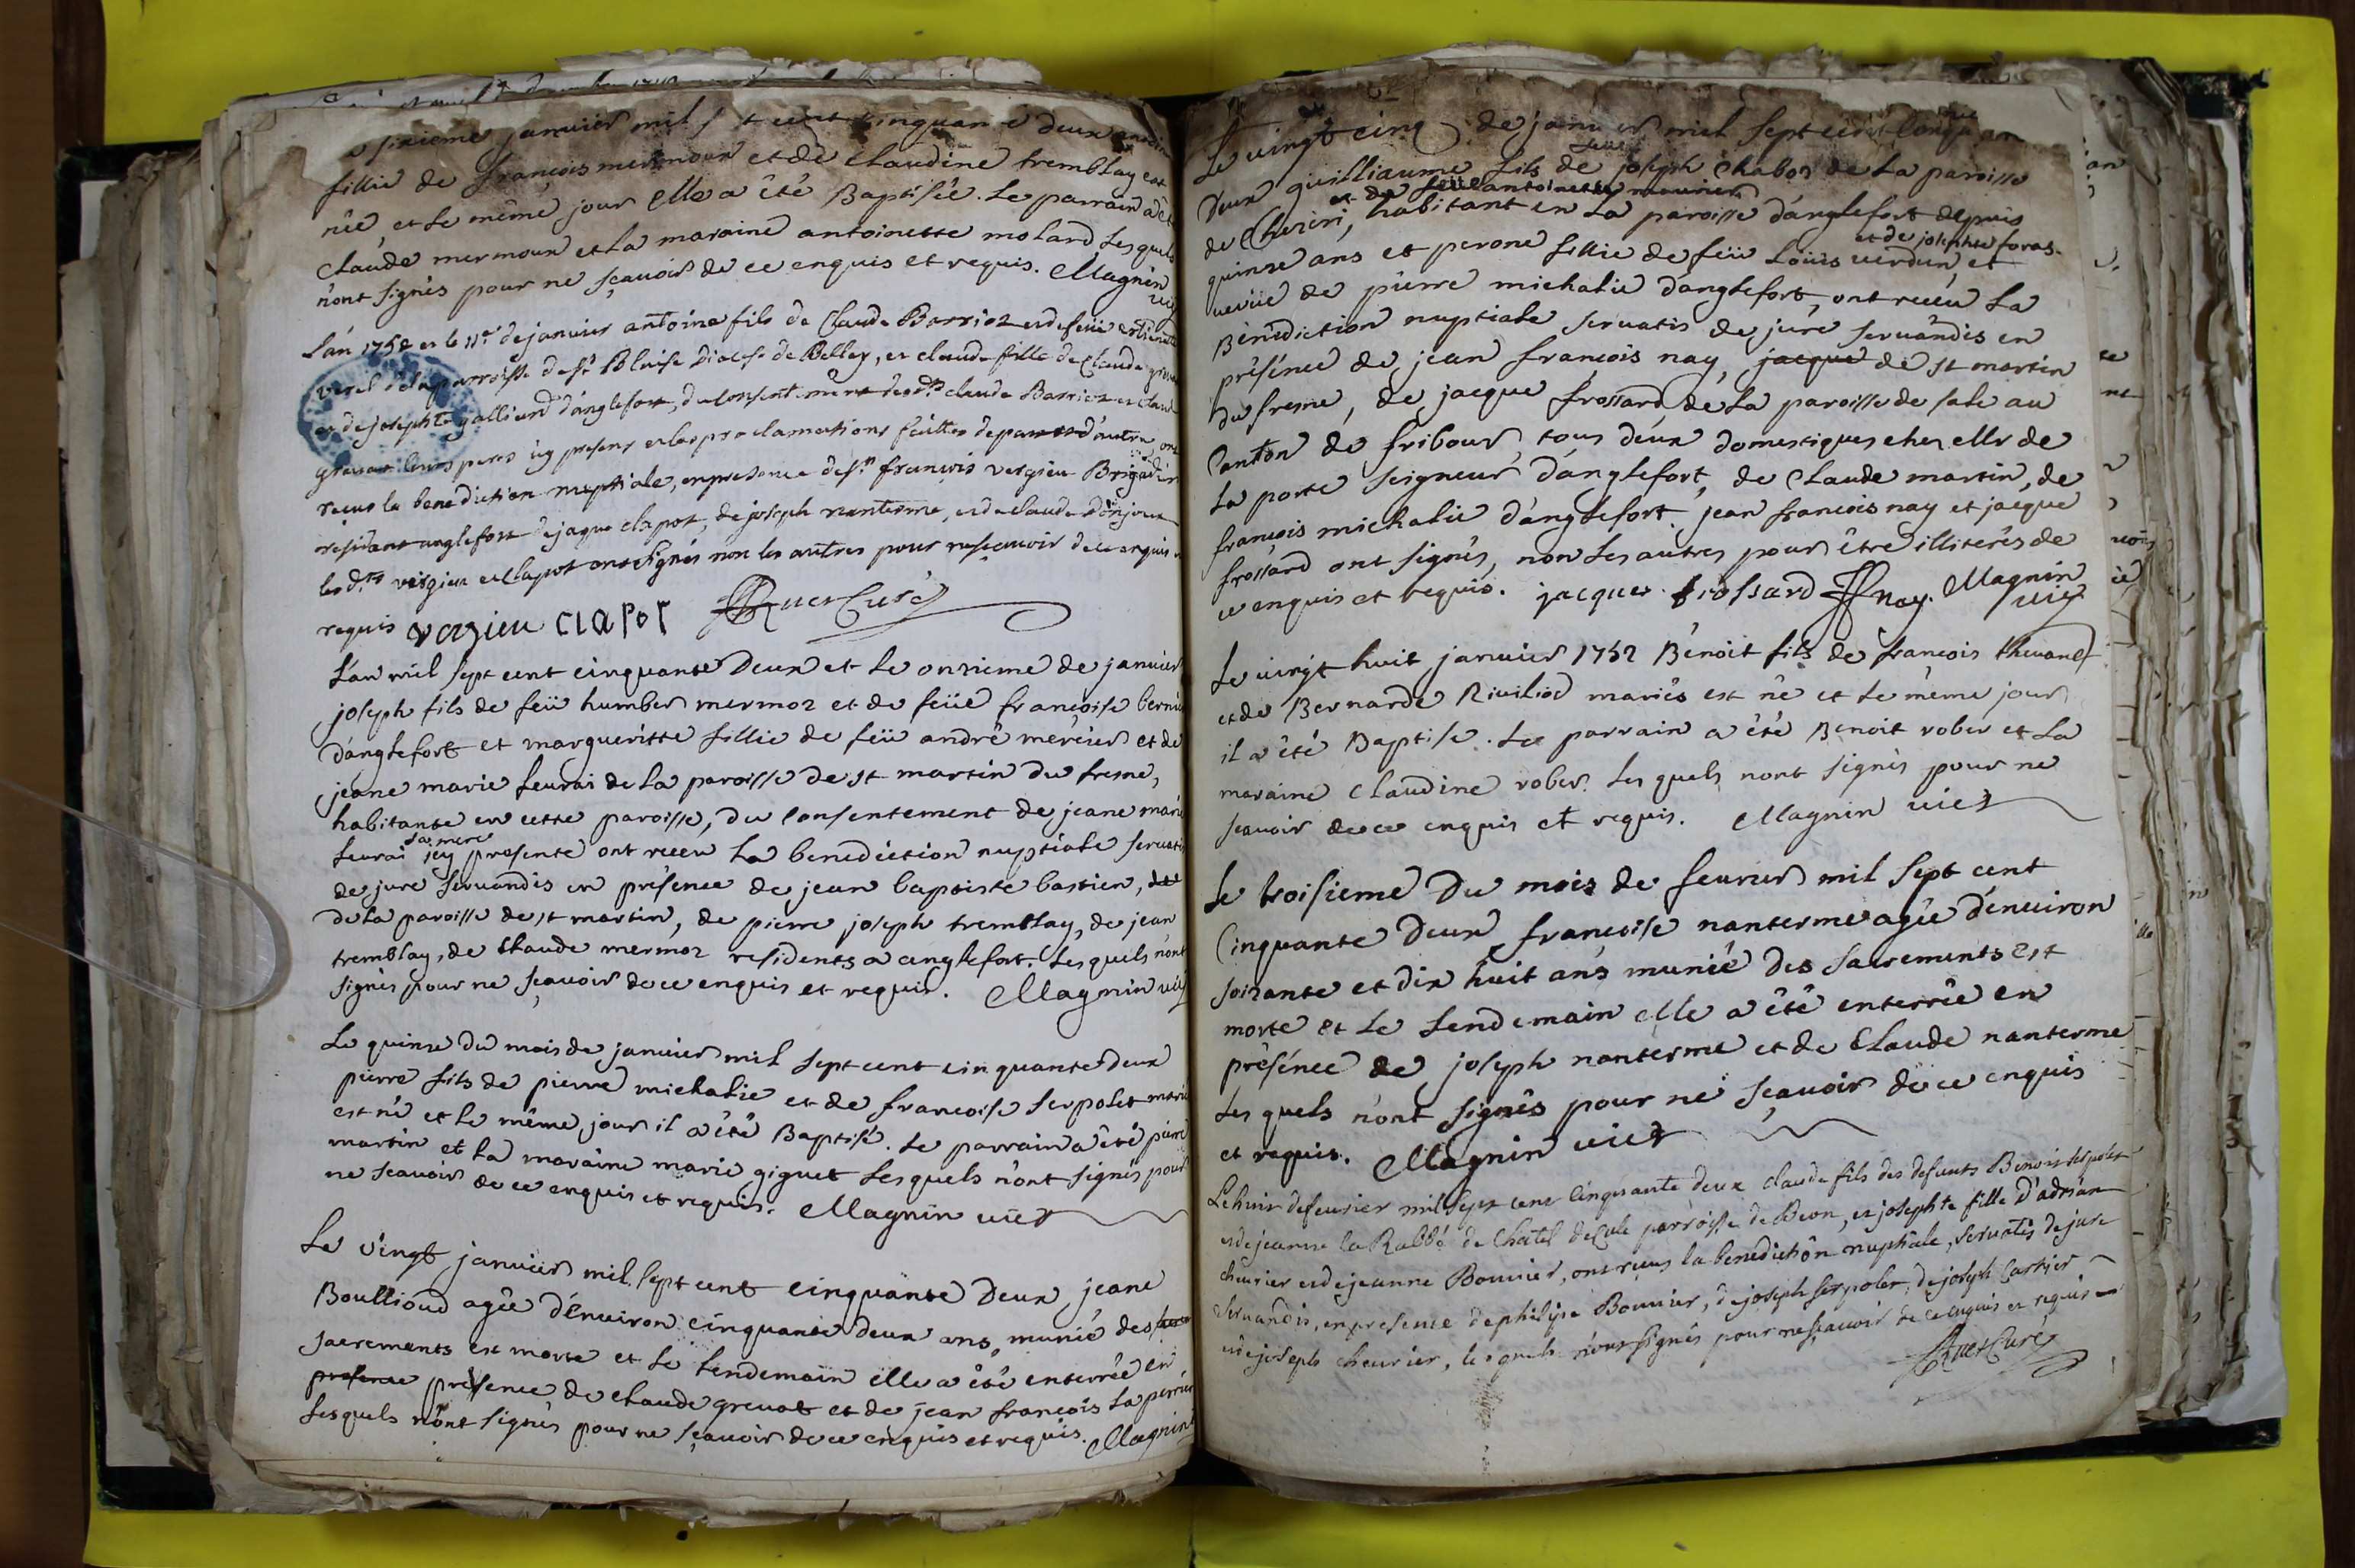 sixieme janvier mil sept cent cinquante deux
fillie de françois mermour et de Claudine tremblay est
née, et le même jour elle a été Baptisée. Le parrain a été
Claude mermoux et la maraine antoinette molard Lesquels
n'ont signés pour ne sçavoir de ce enquis et requis. Magnin vic
L'an 1752 et le 11e de janvier antoine fils de Claude Barrioz et de feüe
de la parroisse de St Blaise Diocese de Belley, et claude fille de Claude
et de josephte gallieud d'anglefort, du consentement desdts claude Barrioz et claude
grevat leurs peres icy presens et les proclamations faittes de part et d'autre ont
reçus la benediction nuptiale, en presence de sr françois vergieu Brigadier
residant anglefort de jaque clapot, de joseph nanterme, et de claude Donjoux
lesdts vergieu et Clapot ont signés non les autres pour ne scavoir de ce enquis et
requis vergieu clapot Curé
L'an mil sept cent cinquante Deux et le onzieme de janvier
joseph fils de feü humber mermoz et de feüe françoise
d'anglefort et margueritte fillie de feü andré mercier et de
jeane marie feurai de la paroisse de st martin du fresne,
habitante en cette paroisse, du consentement de jeane marie
feurai sa mere icy presente ont receu la benediction nuptiale servatis
de jure servandis en présence de jean baptiste bastien, de
de la paroisse de st martin, de pierre joseph tremblay, de jean
tremblay, de Claude mermoz residents a anglefort. Lesquels n'ont
signés pour ne sçavoir de ce enquis et requis. Magnin vic
Le quinze du mois de janvier mil sept cent cinquante deux
pierre fils de pierre michalie et de françoise serpolet mariés
est né et le même jour il a été Baptisé. Le parrain a été pierre
martin et la maraine marie giguet Lesquels n'ont signés pour
ne scavoir de ce enquis et requis. Magnin vic
Le vingt janvier mil sept cent cinquante Deux jeane
Boullioud agée d'environ cinquante deux ans, munié des
sacrements est morte et le lendemain elle a été enterrée en
presence présence de Claude grevat et de jean françois la perrier
Lesquels n'ont signés pour ne sçavoir de ce enquis et requis. Magnin
Le vingt cinq de janvier mil sept cent cinquante
Deux guilliaume fils de feu joseph Chabod de La paroisse
et de feüe antoinette mounier
de Cheziri, habitant en La paroisse d'anglefort depuis
quinze ans et perone fillie de feü Loüis verdun, et de josephte foras. et
veuve de pierre michalie d'anglefort, ont receu la
Bénédiction nuptiale servatis de jure servandis en
présence de jean françois nay, jacque de st martin
du fresne, de jacque frossard de La paroisse de sale au
Canton de fribour, tous deux domestiques chez Mr de
La porte seigneur d'anglefort, de Claude martin, de
françois michalie d'anglefort. jean françois nay et jacque
frossard ont signés, non les autres pour être illiterés de
ce enquis et requis. jacques frossard JF nay. Magnin vic
Le vingt huit janvier 1752 Benoit fils de françois thevand
et de Bernarde Riviliod mariés est né et le même jour
il a été Baptisé. Le parrain a été Benoit rober et la
maraine Claudine rober. Les quels n'ont signés pour ne
scavoir de ce enquis et requis. Magnin vic
Le troisieme Du mois de fevrier mil sept cent
Cinquante Deux françoise nanterme agée d'environ
soixante et dix huit ans munié des sacrements est
morte et le lendemain elle a été enterrée en
présence de joseph nanterme et de Claude nanterme
Les quels n'ont signés pour ne sçavoir de ce enquis
et requis. Magnin vic
Le huit de fevrier mil sept cent cinquante deux claude fils des defunts Benoit serpolet
et de jeanne la Rabbé de Chatel de Cule parroisse de Beon, et josephte fille d'adrian
chevrier et de jeanne Bonnier, ont reçus la benediction nuptiale, servatis de jure
servandis, en presence de philipe Bonnier, de joseph serpolet, de joseph Cartier
et de joseph chevrier, lesquels n'ont signés pour ne sçavoir de ce enquis et requis
Curé